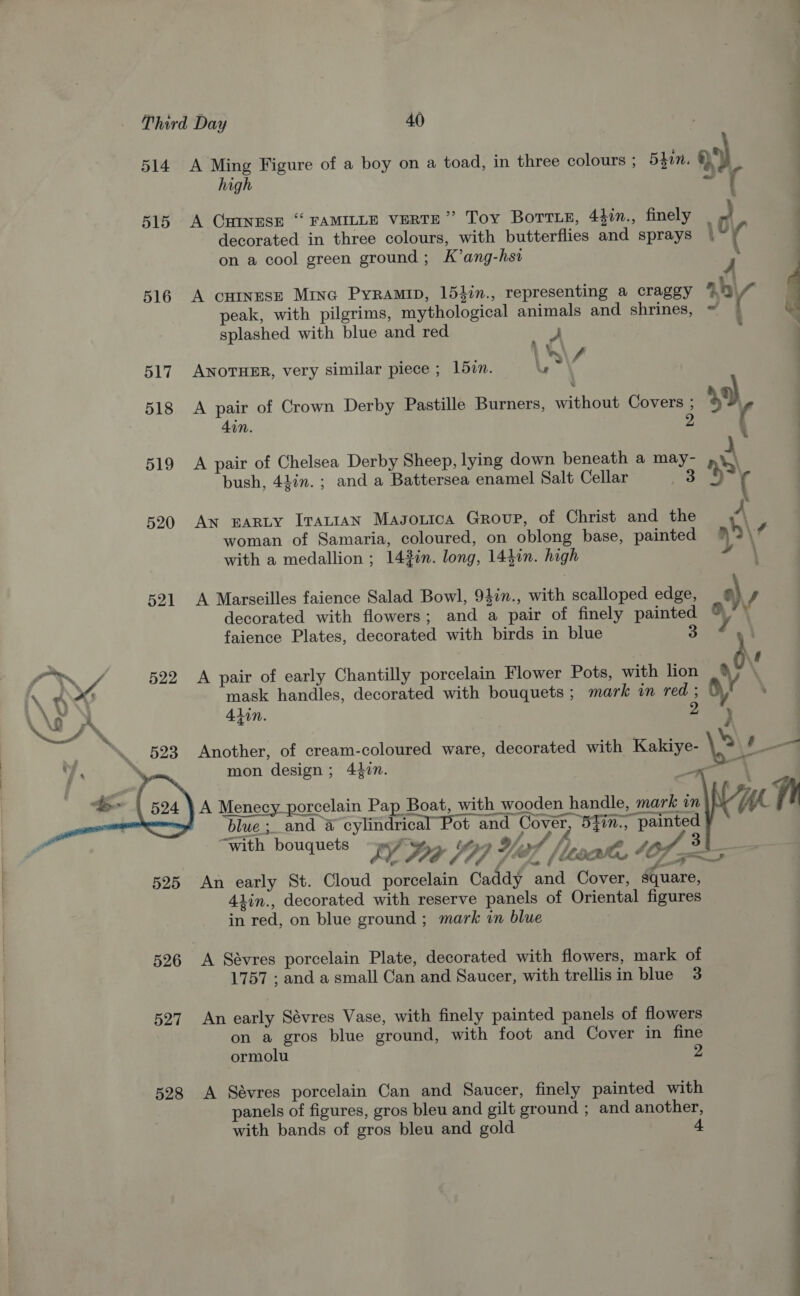 Third Day 40
514 A Ming Figure of a boy on a toad, in three colours ; 5½in.
high
515 A CHINESE “ FAMILLE VERTE ” TOY BOTTLE, 4½in., finely
decorated in three colours, with butterflies and sprays
on a cool green ground ; K’ang-hsi
516 A CHINESE MING PYRAMID, 15½in., representing a craggy
peak, with pilgrims, mythological animals and shrines,
splashed with blue and red
517 ANOTHER, very similar piece ; 15in.
518 A pair of Crown Derby Pastille Burners, without Covers ;
4in. 2
519 A pair of Chelsea Derby Sheep, lying down beneath a may-
bush, 4½in. ; and a Battersea enamel Salt Cellar 3
520 AN EARLY ITALIAN MAJOLICA GROUP, of Christ and the
woman of Samaria, coloured, on oblong base, painted
with a medallion ; 14¾in. long, 14½in. high
521 A Marseilles faience Salad Bowl, 9½in., with scalloped edge,
decorated with flowers ; and a pair of finely painted
faience Plates, decorated with birds in blue 3
522 A pair of early Chantilly porcelain Flower Pots, with lion
mask handles, decorated with bouquets ; mark in red ;
4½in. 2
523 Another, of cream-coloured ware, decorated with Kakiye-
mon design ; 4½in.
524 A Menecy porcelain Pap Boat, with wooden handle, mark in
blue ; and a cylindrical Pot and Cover, 5¾in., painted
with bouquets 3
525 An early St. Cloud porcelain Caddy and Cover, square,
4½in., decorated with reserve panels of Oriental figures
in red, on blue ground ; mark in blue
526 A Sévres porcelain Plate, decorated with flowers, mark of
1757 ; and a small Can and Saucer, with trellis in blue 3
527 An early Sévres Vase, with finely painted panels of flowers
on a gros blue ground, with foot and Cover in fine
ormolu 2
528 A Sévres porcelain Can and Saucer, finely painted with
panels of figures, gros bleu and gilt ground ; and another,
with bands of gros bleu and gold 4